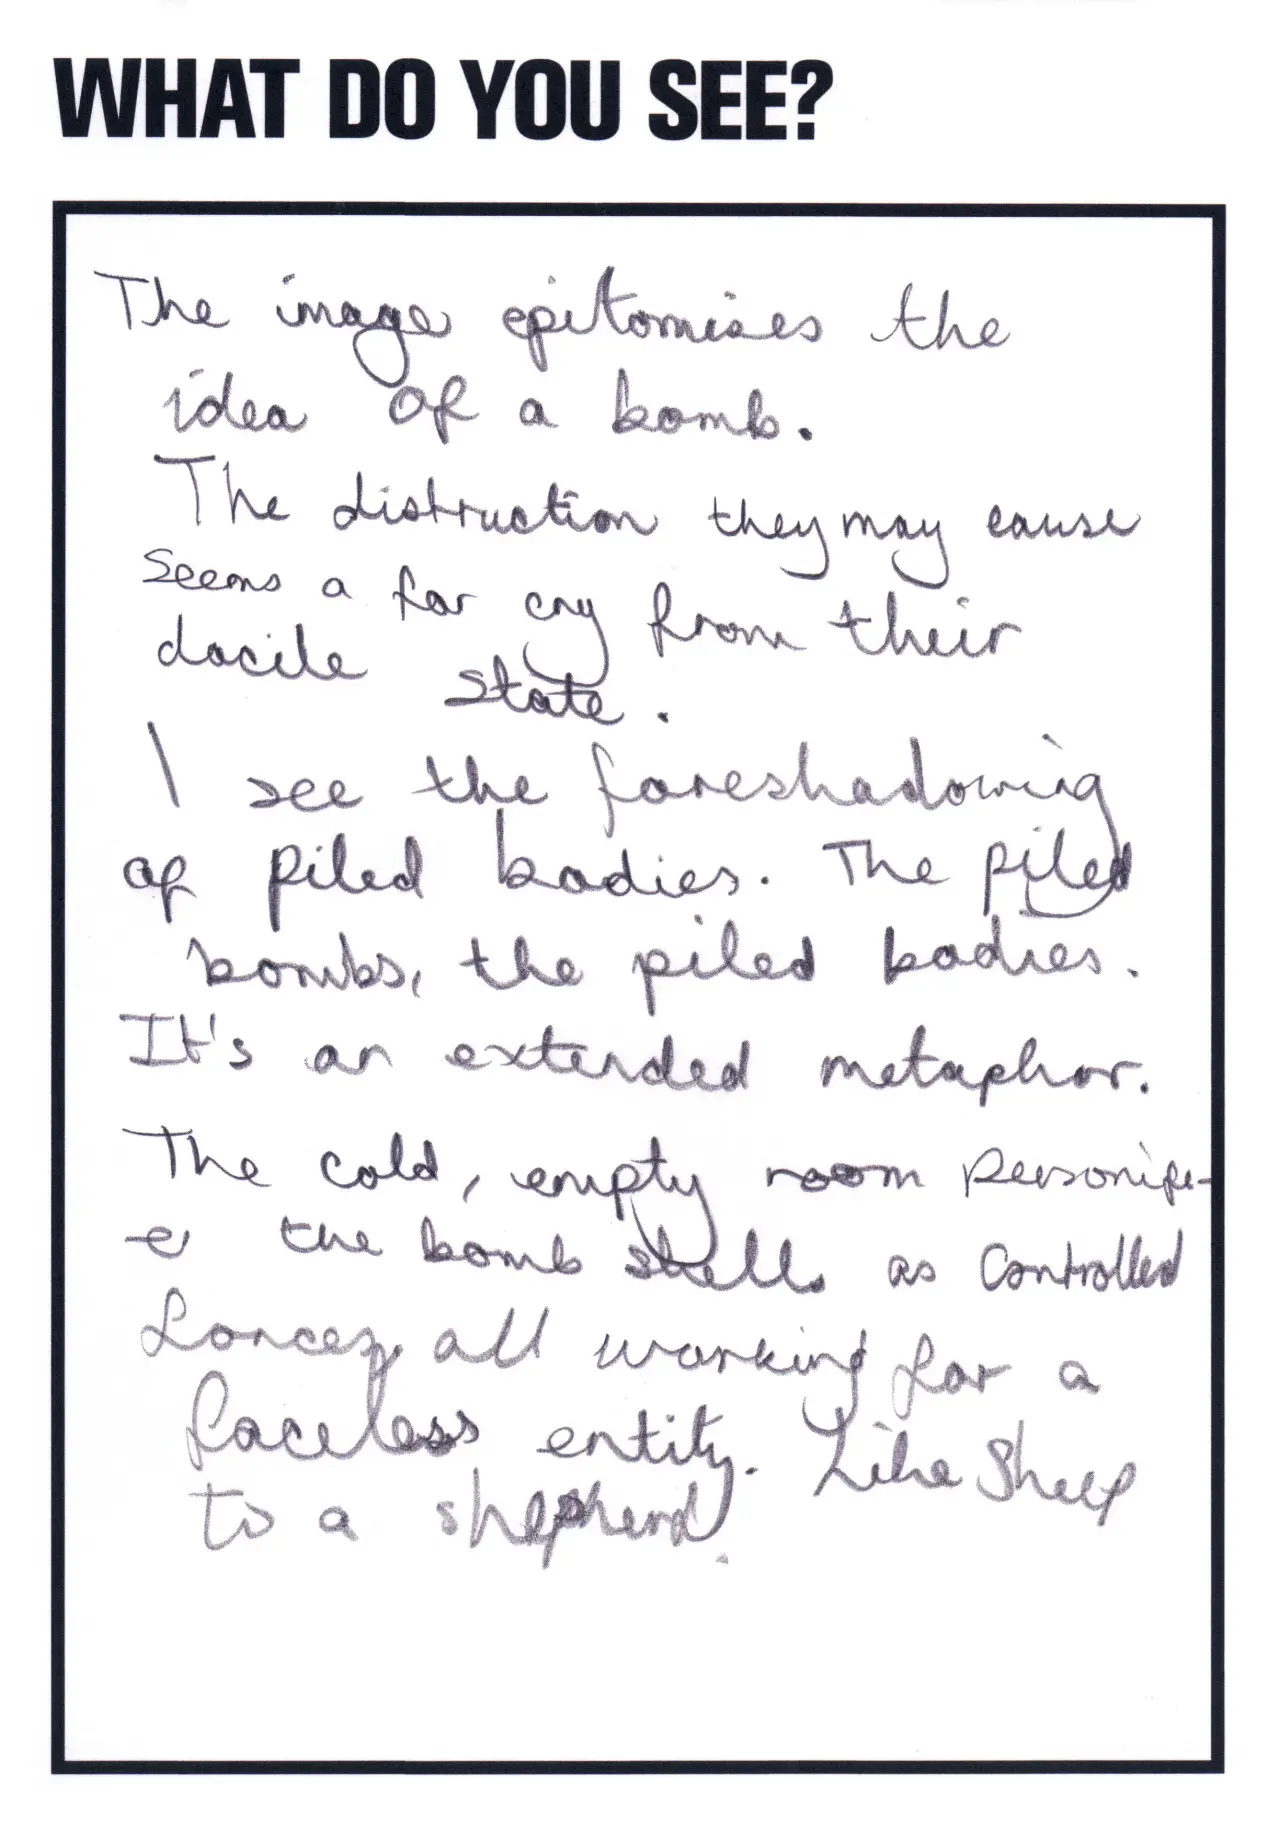 WHAT DO YOU SEE?
The image epitomises the
idea of a bomb.
The distruction they may cause
seems a far cry from their
docile state.
I see the foreshadowing
of piled bodies. The piled
bombs, the piled bodies.
It's an extended metaphor.
The cold, empty room personifi-
-e the bomb shells as controlled
forces, all working for a
faceless entity. Like Sheep
to a shepherd.